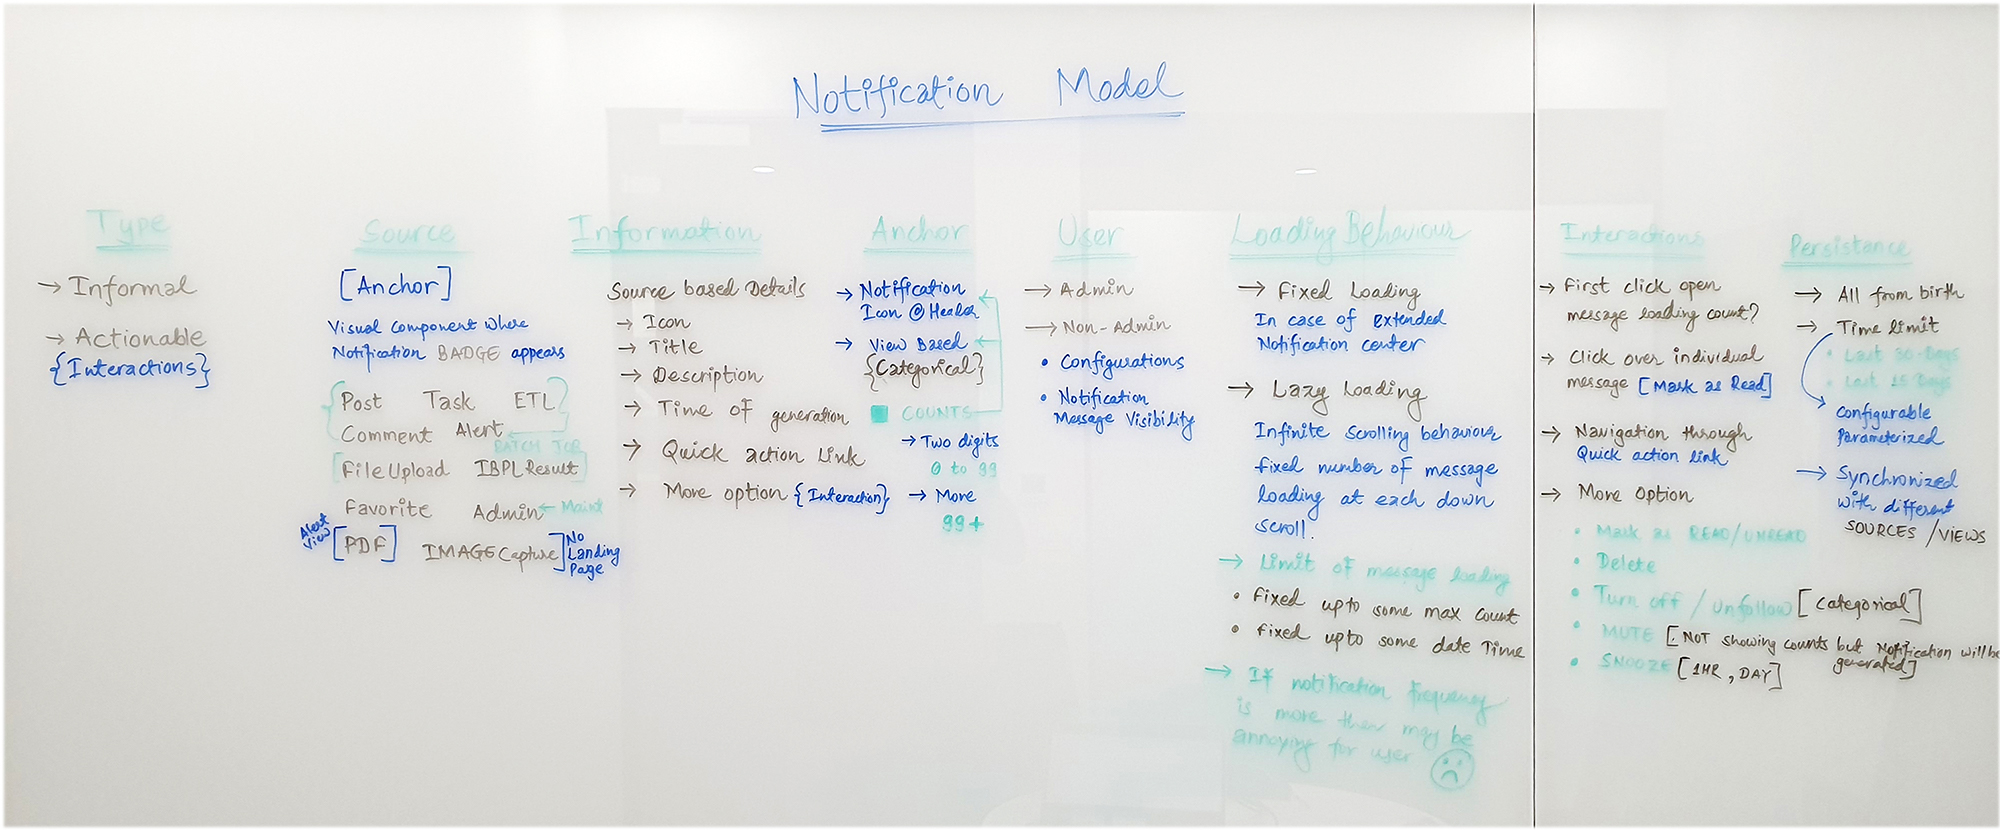 Notification Model
Type
→ Informal
→ Actionable
{Interactions}
Source
[Anchor]
Visual component where
Notification BADGE appears
{Post Task ETL}
Comment Alert
BATCH JOB
[File Upload IBPL Result]
Favorite Admin ← Maint
Alert
View
[PDF] IMAGE Capture]
No
Landing
Page
Information
Source based Details
→ Icon
→ Title
→ Description
→ Time of generation
→ Quick action Link
→ More option {Interaction}
Anchor
→ Notification
Icon @ Header
→ View Based
{Categorical}
COUNTS
→ Two digits
0 to 99
→ More
99+
User
→ Admin
→ Non-Admin
• Configurations
• Notification
Message Visibility
Loading Behaviour
→ Fixed Loading
In case of Extended
Notification center
→ Lazy Loading
Infinite Scrolling behaviour
fixed number of message
loading at each down
scroll.
→ Limit of message loading
• Fixed upto some max count
• Fixed upto some date Time
→ If notification frequency
is more then may be
annoying for user
Interactions
→ First click open
message loading count?
→ Click over individual
message [Mask as Read]
→ Navigation through
Quick action link
→ More Option
• Mask as READ/UNREAD
• Delete
• Turn off / Unfollow [Categorical]
• MUTE [NOT showing counts but Notification will be
generated]
• SNOOZE [1HR, DAY]
Persistance
→ All from birth
→ Time limit
• Last 30-Days
• Last 15-Days
Configurable
Parameterized
→ Synchronized
with different
SOURCES / VIEWS